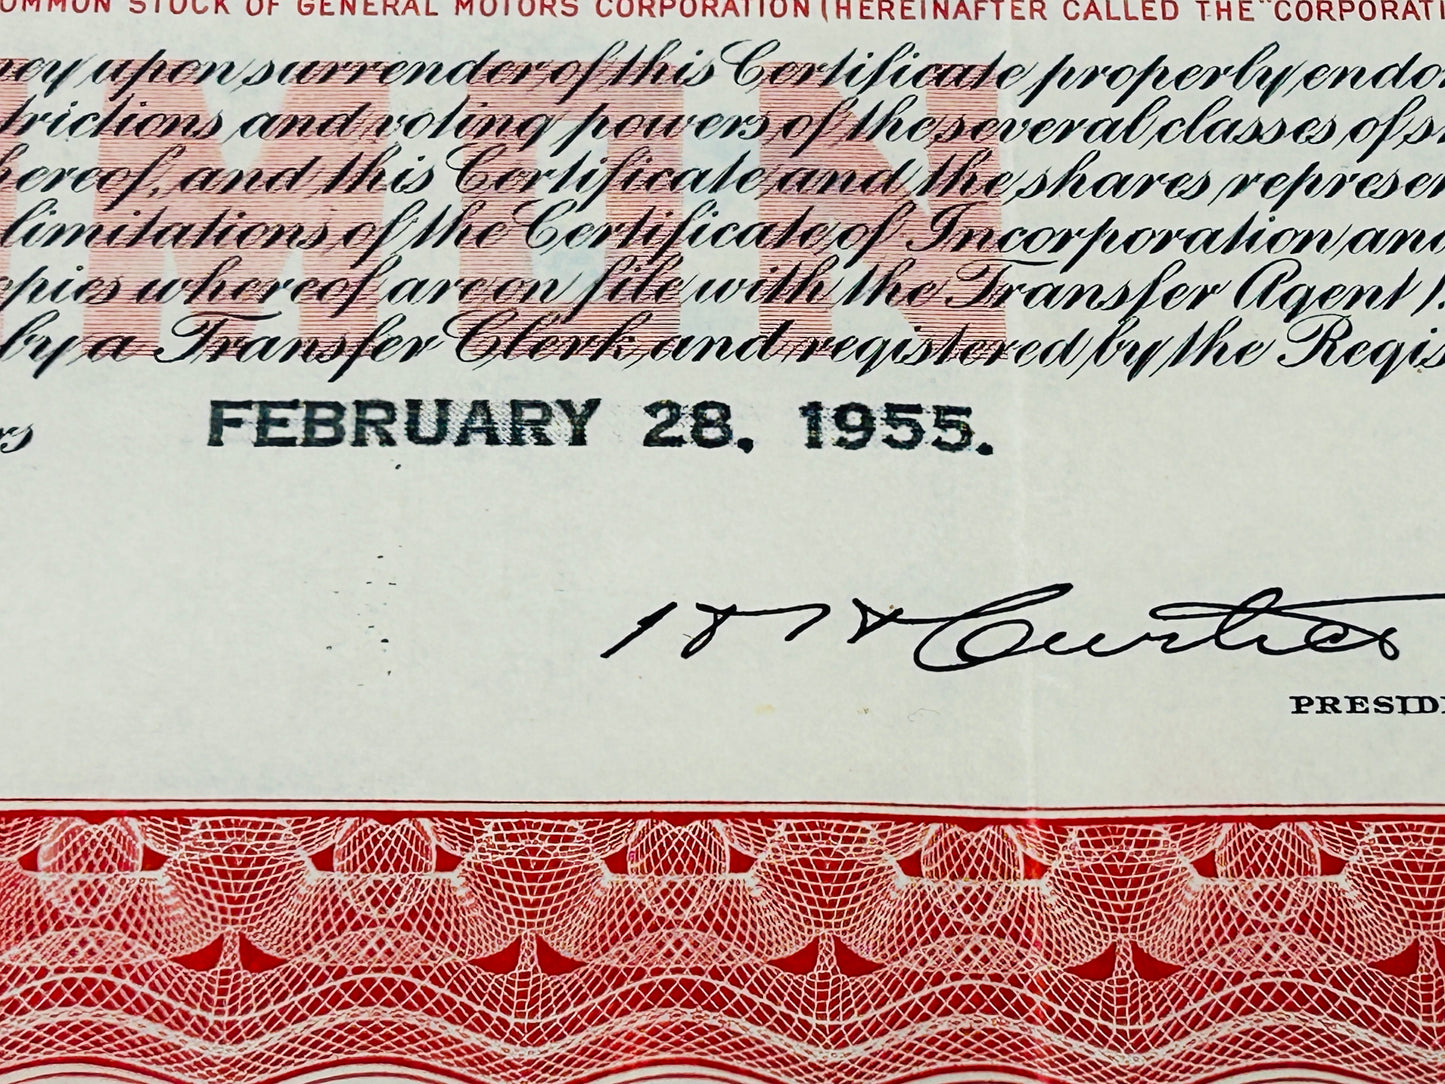 OMMON STOCK OF GENERAL MOTORS CORPORATION (HEREINAFTER CALLED THE "CORPORATI
ey upon surrender of this Certificate properly endo
trictions and voting powers of the several classes of s
hereof, and this Certificate and the shares represen
limitations of the Certificate of Incorporation and
opies whereof are on file with the Transfer Agent).
by a Transfer Clerk and registered by the Regis
MON
rs
FEBRUARY 28, 1955.
H H Curtice
PRESIDE